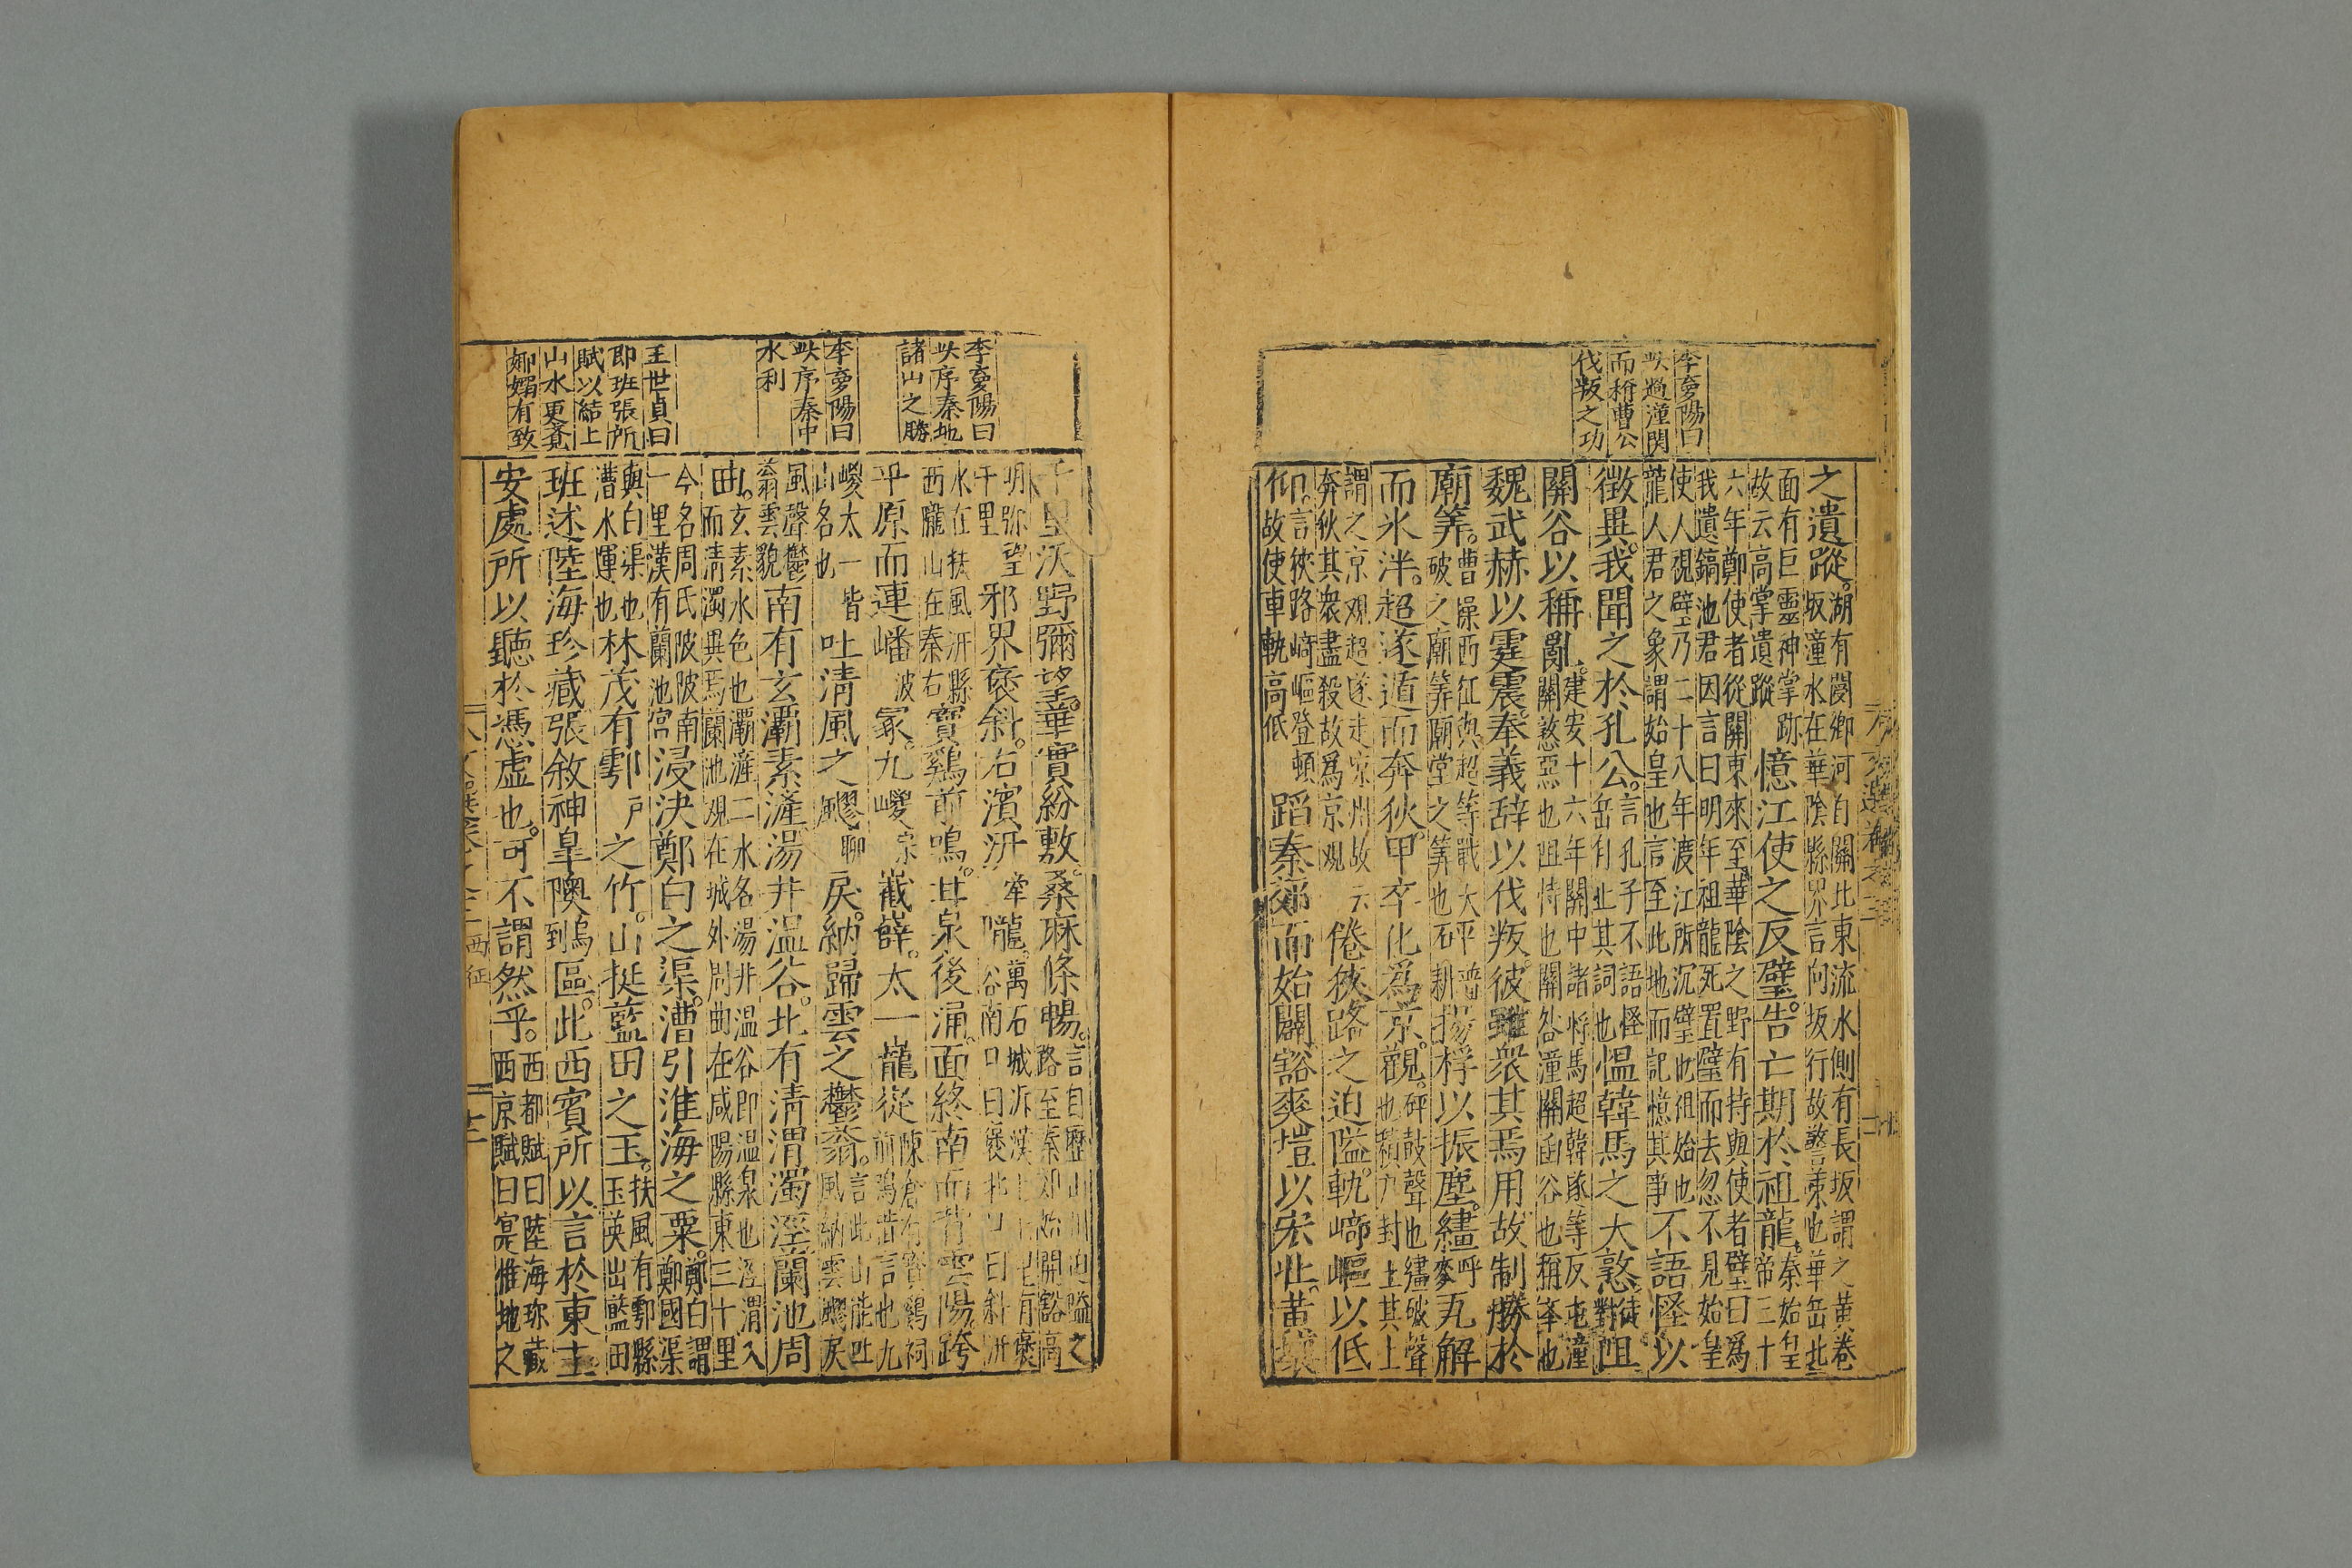 李夢陽曰
此過潼関
而稱曹公
伐叛之功
之遺蹤湖有閿鄉河自關北東流水側有長坂謂之黃巷
坂潼水在華陰縣界言向坂行故警策也華岳北
面有巨靈神掌跡
故云高掌遺蹤憶江使之反璧告亡期於祖龍秦始皇
帝三十
六年鄭使者從關東來至華陰之野有持與使者璧曰爲
我遺鎬池君因言曰明年祖龍死置璧而去忽不見始皇
使人視璧乃二十八年渡江所沉璧也祖始也
龍人君之象謂始皇也言至此地而記憶其事不語怪以
徵異我聞之於孔公言孔子不語怪
岳有此其詞也愠韓馬之大憝徒對阻
關谷以稱亂建安十六年關中諸將馬超韓遂等反屯潼
關憝惡也阻恃也關谷潼關函谷也稱舉也
魏武赫以霆震奉義辞以伐叛彼雖衆其焉用故制勝於
廟筭曹操西征與超等戰大
破之廟筭廟堂之筭也揚桴以振塵繣呼麥瓦解
而氷泮超遂遁而奔狄甲卒化爲京觀砰鼓聲也繣破聲
也積尸封土其上
謂之京观超遂走凉州故云
奔狄其衆盡殺故爲京观倦狹路之迫隘軌崎嶇以低
仰言狹路崎嶇登頓
故使車軌高低蹈秦郊而始闢豁爽塏以宏壯黃壤
李夢陽曰
此序秦地
諸山之勝
李夢陽曰
此序秦中
水利
王世貞曰
即班張所
賦以結上
山水更覺
娜媚有致
千里沃野彌望華實紛敷桑麻條暢言自歷山川迫隘之
路至秦郊始開豁高
明弥望
千里邪界褒斜右濱汧牽隴
谷南口曰褒北口曰斜汧
水在扶風汧縣
西隴山在秦右寶鷄前鳴甘泉後涌面終南而背雲陽跨
平原而連嶓波冢九嵕宗嶻嶭太一巃嵸陳倉有寶鷄祠
前鳴昔言也九
嵕太一皆
山名也吐清風之飂聊戾納歸雲之鬱蓊言此山能吐
風納雲飂戾
風聲鬱
蓊雲貌南有玄灞素滻湯井温谷北有清渭濁涇蘭池周
曲玄素水色也灞滻二水名湯井温谷即温泉也涇渭入
而清濁異焉蘭池观在城外周曲在咸陽縣東三十里
今名周氏陂陂南
一里漢有蘭池宮浸決鄭白之渠漕引淮海之粟鄭白謂
鄭國渠
與白渠也
漕水運也林茂有鄠戸之竹山挺藍田之玉扶風有鄠縣
玉英出藍田
班述陸海珍藏張敘神皐隩烏到區此西賓所以言於東主
安處所以聽於憑虚也可不謂然乎西都賦曰陸海珍藏
西京賦曰寔惟地之
西征